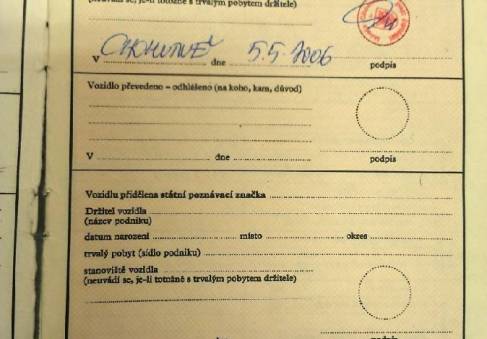 (neuvádí se, je-li totožné s trvalým pobytem držitele)
V CHOHUTNÉ dne 5.5.2006
podpis
Vozidlo převedeno – odhlášeno (na koho, kam, důvod)
V dne
podpis
Vozidlu přidělena státní poznávací značka
Držitel vozidla
(název podniku)
datum narození místo okres
trvalý pobyt (sídlo podniku)
stanoviště vozidla
(neuvádí se, je-li totožné s trvalým pobytem držitele)
podpis